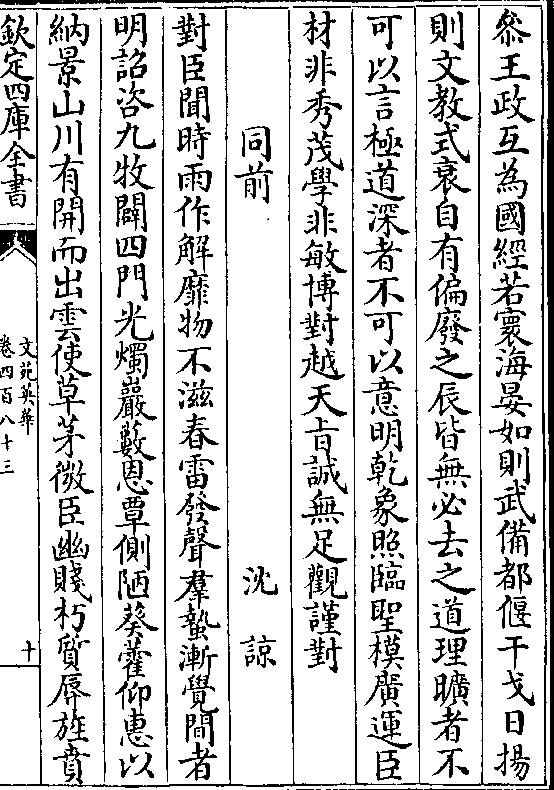 叅王政互為國經若寰海晏如則武備都偃干戈日揚
則文教式衰自有偏廢之辰皆無必去之道理曠者不
可以言極道深者不可以意明乾象照臨聖模廣運臣
材非秀茂學非敏博對越天㫖誠無足觀謹對
同前 沈諒
對臣聞時雨作解靡物不滋春雷發聲羣蟄漸覺間者
明詔咨九牧闢四門光燭巖藪恩覃側陋葵藿仰惠以
納景山川有開而出雲使草茅微臣幽賤朽質辱旌賁
欽定四庫全書
文苑英華
卷四百八十三
十